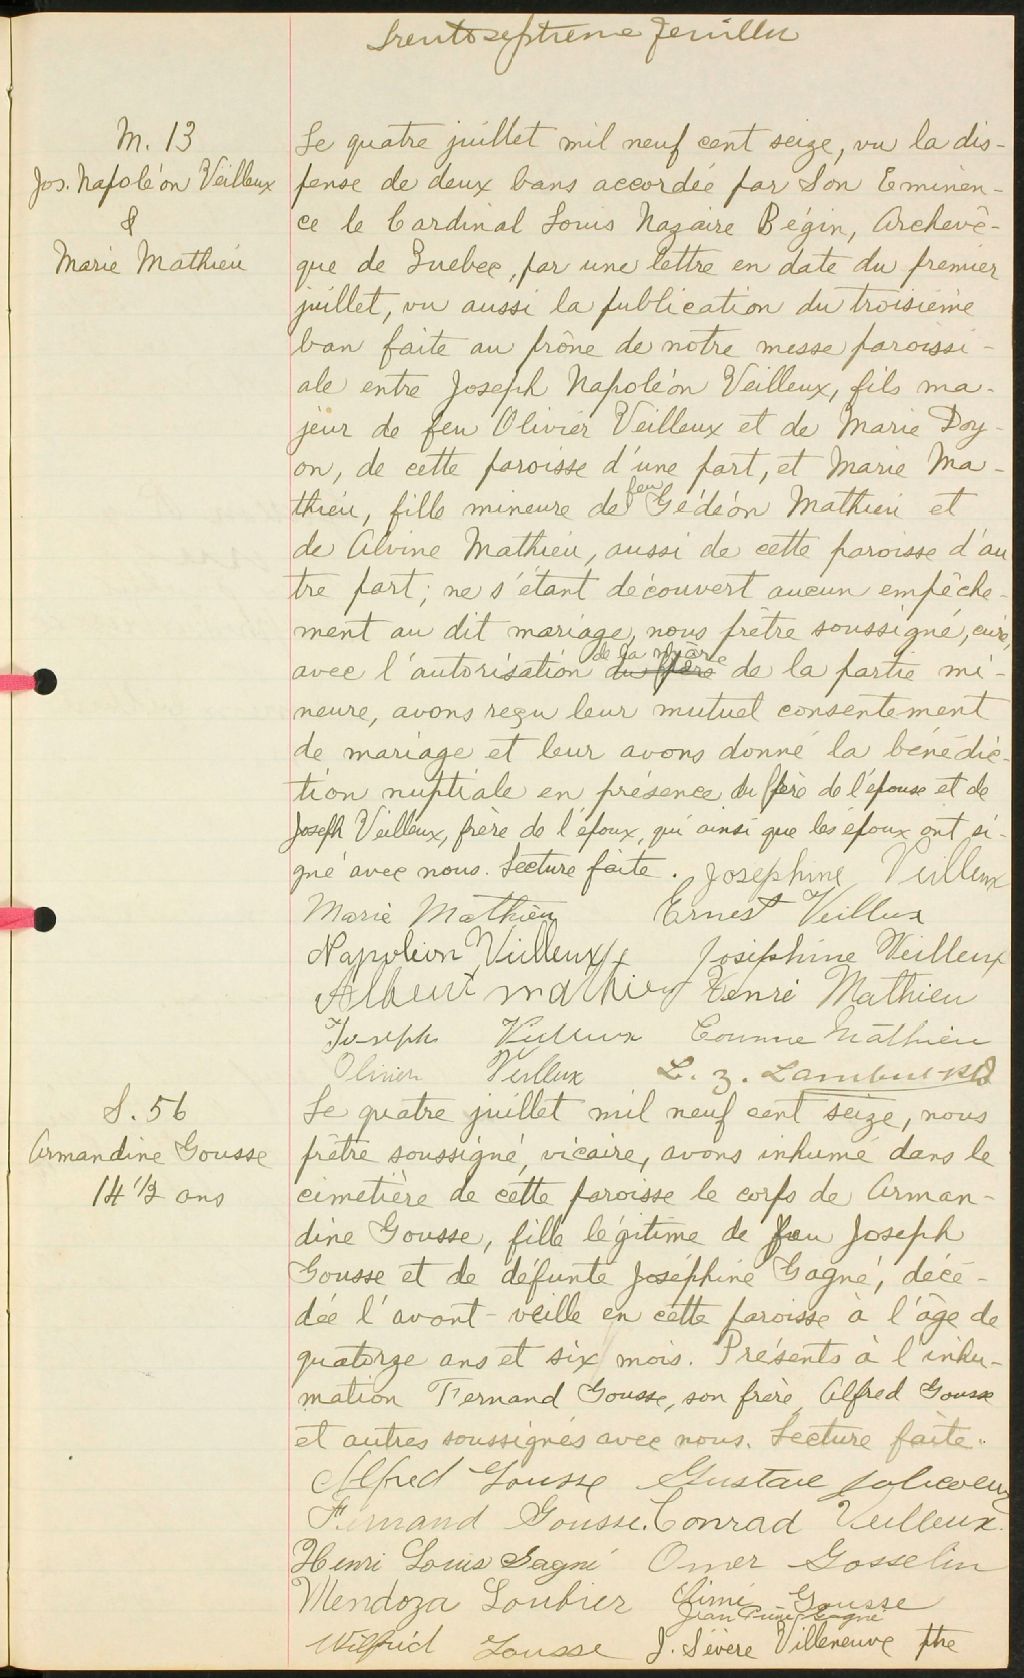 Trente septième feuillet
M. 13
Jos. Napoléon Veilleux
&
Marie Mathieu
Le quatre juillet mil neuf cent seize, vu la dis-
pense de deux bans accordée par Son Eminen-
ce le Cardinal Louis Nazaire Bégin, Archevê-
que de Quebec, par une lettre en date du premier
juillet, vu aussi la publication du troisième
ban faite au prône de notre messe paroissi-
ale entre Joseph Napoléon Veilleux, fils ma-
jeur de feu Olivier Veilleux et de Marie Doy-
on, de cette paroisse d'une part, et Marie Ma-
thieu, fille mineure de feu Gédéon Mathieu et
de Alvine Mathieu, aussi de cette paroisse d'au
tre part; ne s'étant découvert aucun empêche-
ment au dit mariage, nous prêtre soussigné, curé,
avec l'autorisation du père de la mère de la partie mi-
neure, avons reçu leur mutuel consentement
de mariage et leur avons donné la bénédic-
tion nuptiale en présence du frère de l'épouse et de
Joseph Veilleux, frère de l'époux, qui ainsi que les époux ont si-
gné avec nous. Lecture faite. Josephine Veilleux
Marie Mathieu Ernest Veilleux
Napoléon Veilleux Joséphine Veilleux
Albert Mathieu Henri Mathieu
Joseph Veilleux Corinne Mathieu
Olivier Veilleux L. Z. Lambert
S. 56
Armandine Gousse
14 1/2 ans
Le quatre juillet mil neuf cent seize, nous
prêtre soussigné, vicaire, avons inhumé dans le
cimetière de cette paroisse le corps de Arman-
dine Gousse, fille légitime de feu Joseph
Gousse et de défunte Joséphine Gagné, décé-
dée l'avant-veille en cette paroisse à l'âge de
quatorze ans et six mois. Présents à l'inhu-
mation Fernand Gousse, son frère, Alfred Gousse
et autres soussignés avec nous. Lecture faite.
Alfred Gousse Gustave Jolicoeur
Fernand Gousse. Conrad Veilleux.
Henri Louis Gagné Omer Gosselin
Mendoza Loubier Aimé Gousse
Jean Gagné
Wilfrid Gousse J. Sévère Villeneuve ptre